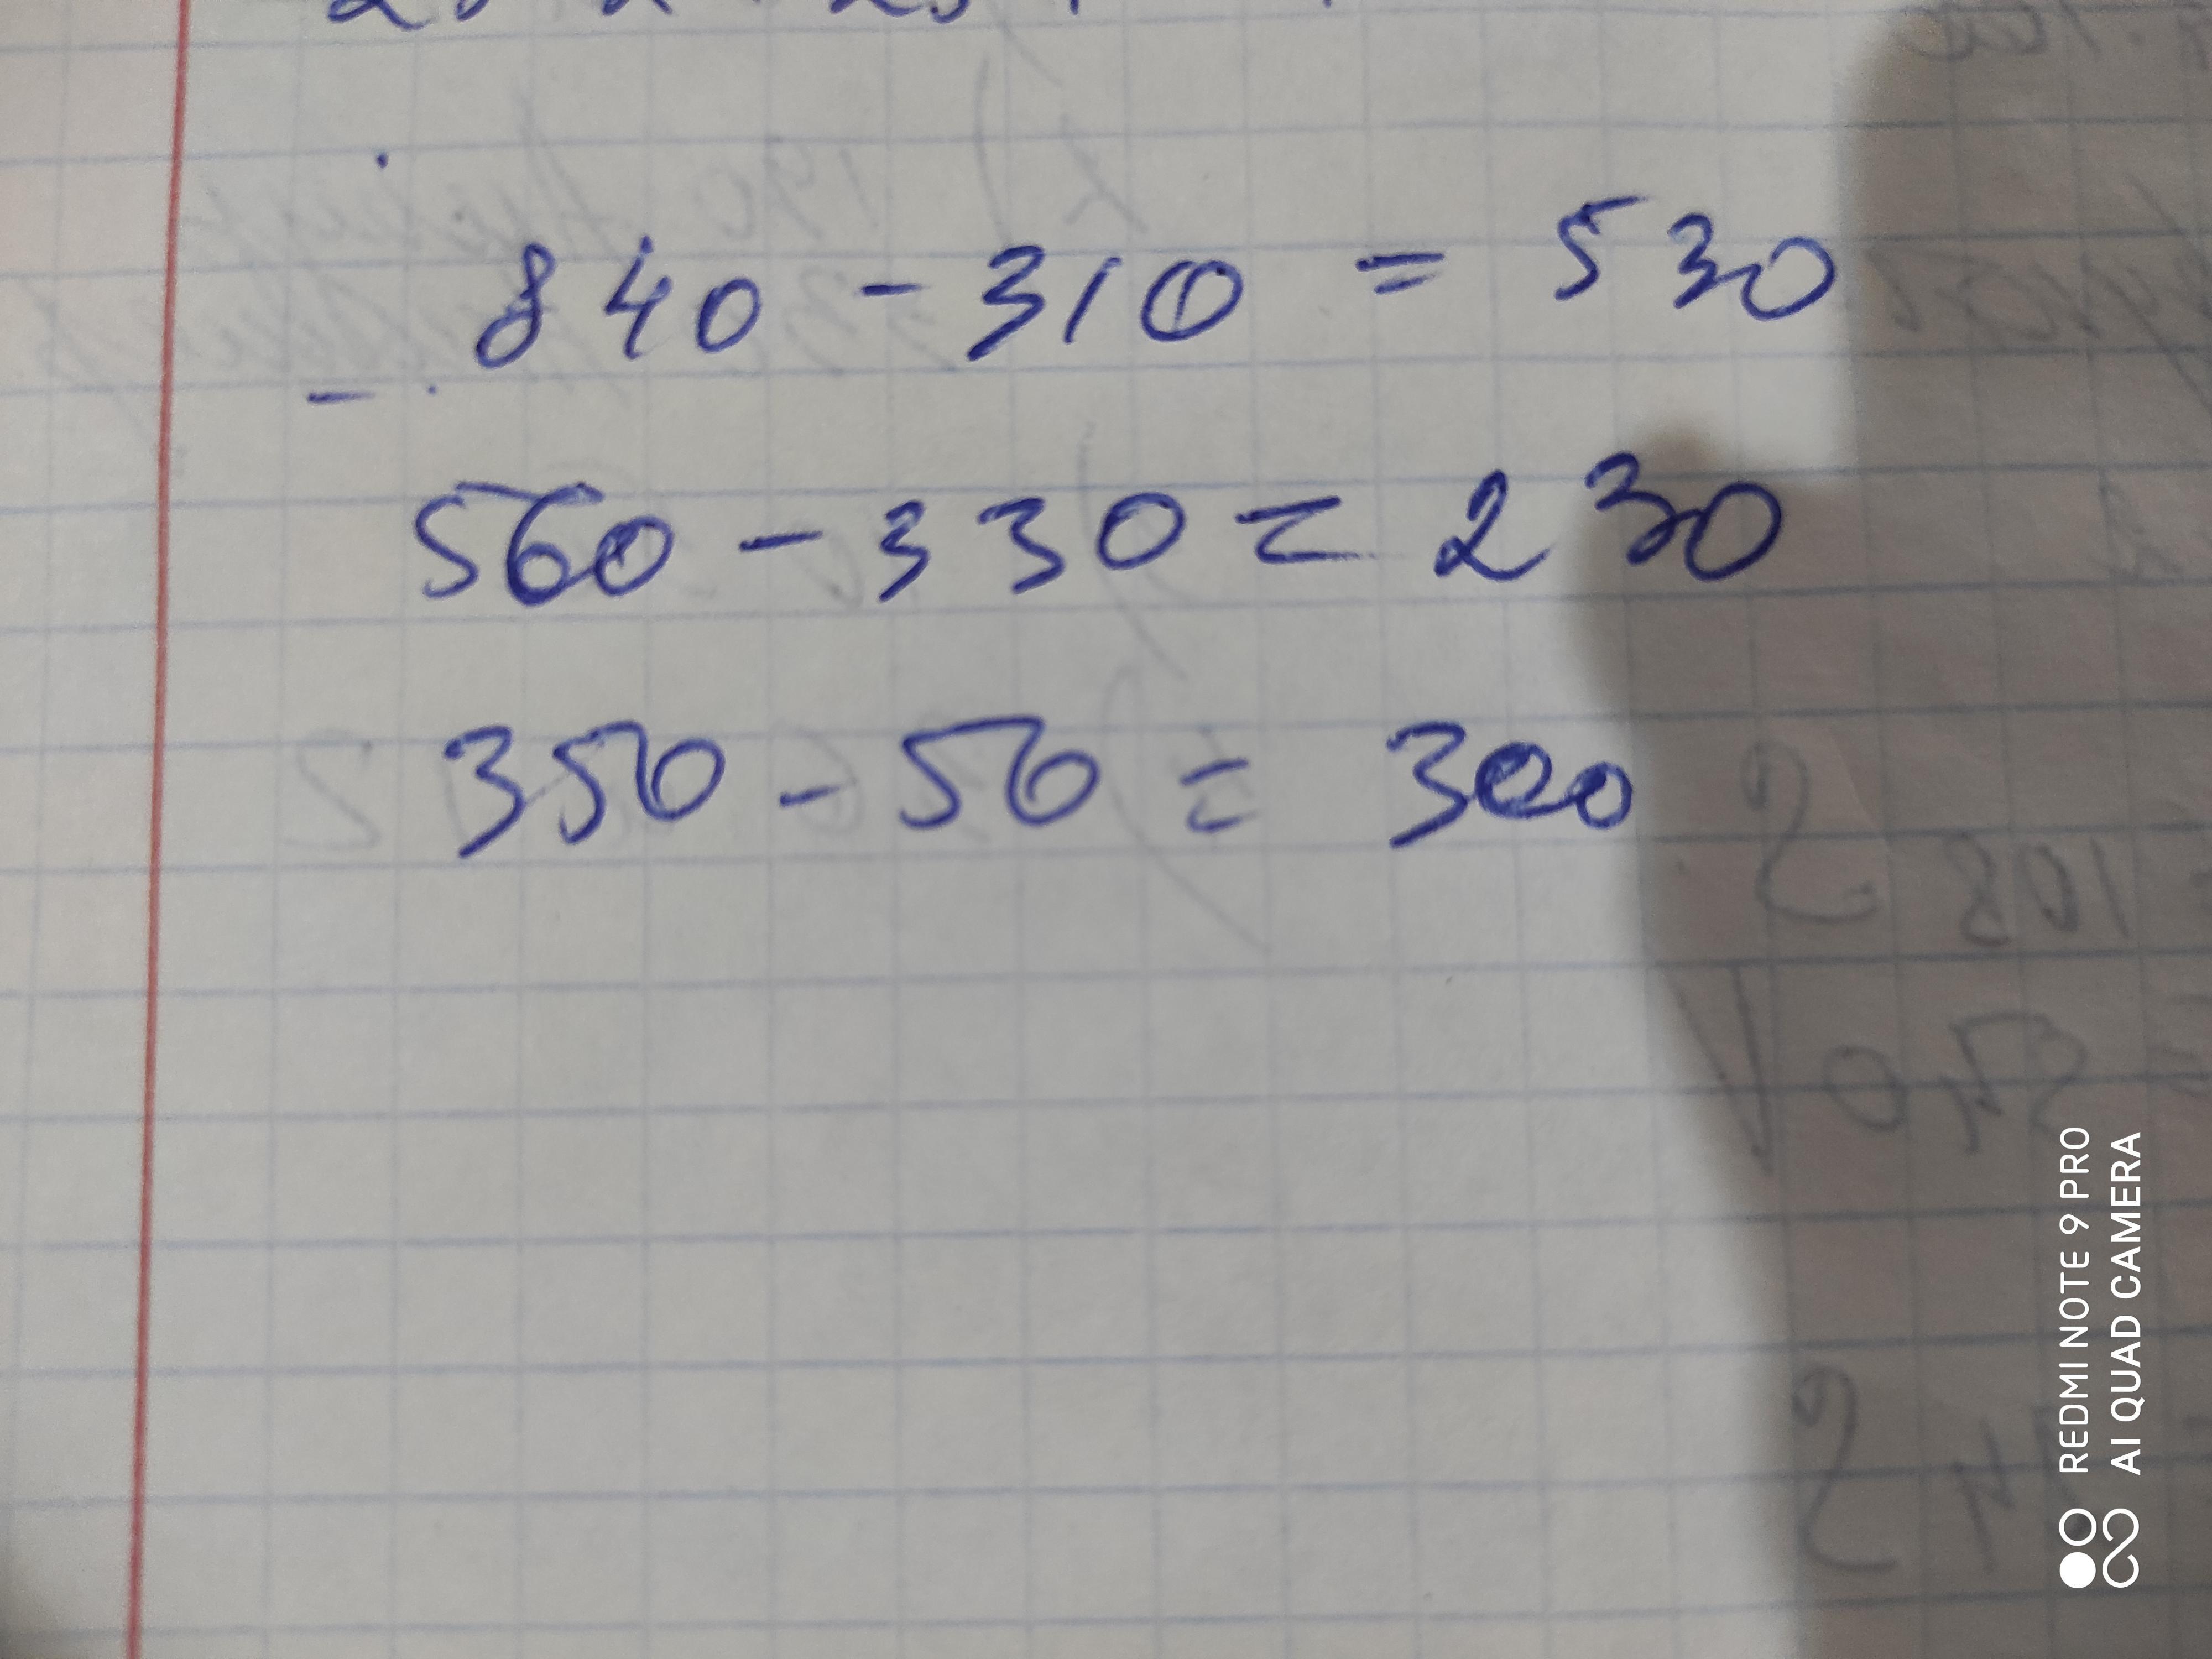 840 - 310 = 530
560 - 330 = 230
350 - 50 = 300
REDMI NOTE 9 PRO
AI QUAD CAMERA